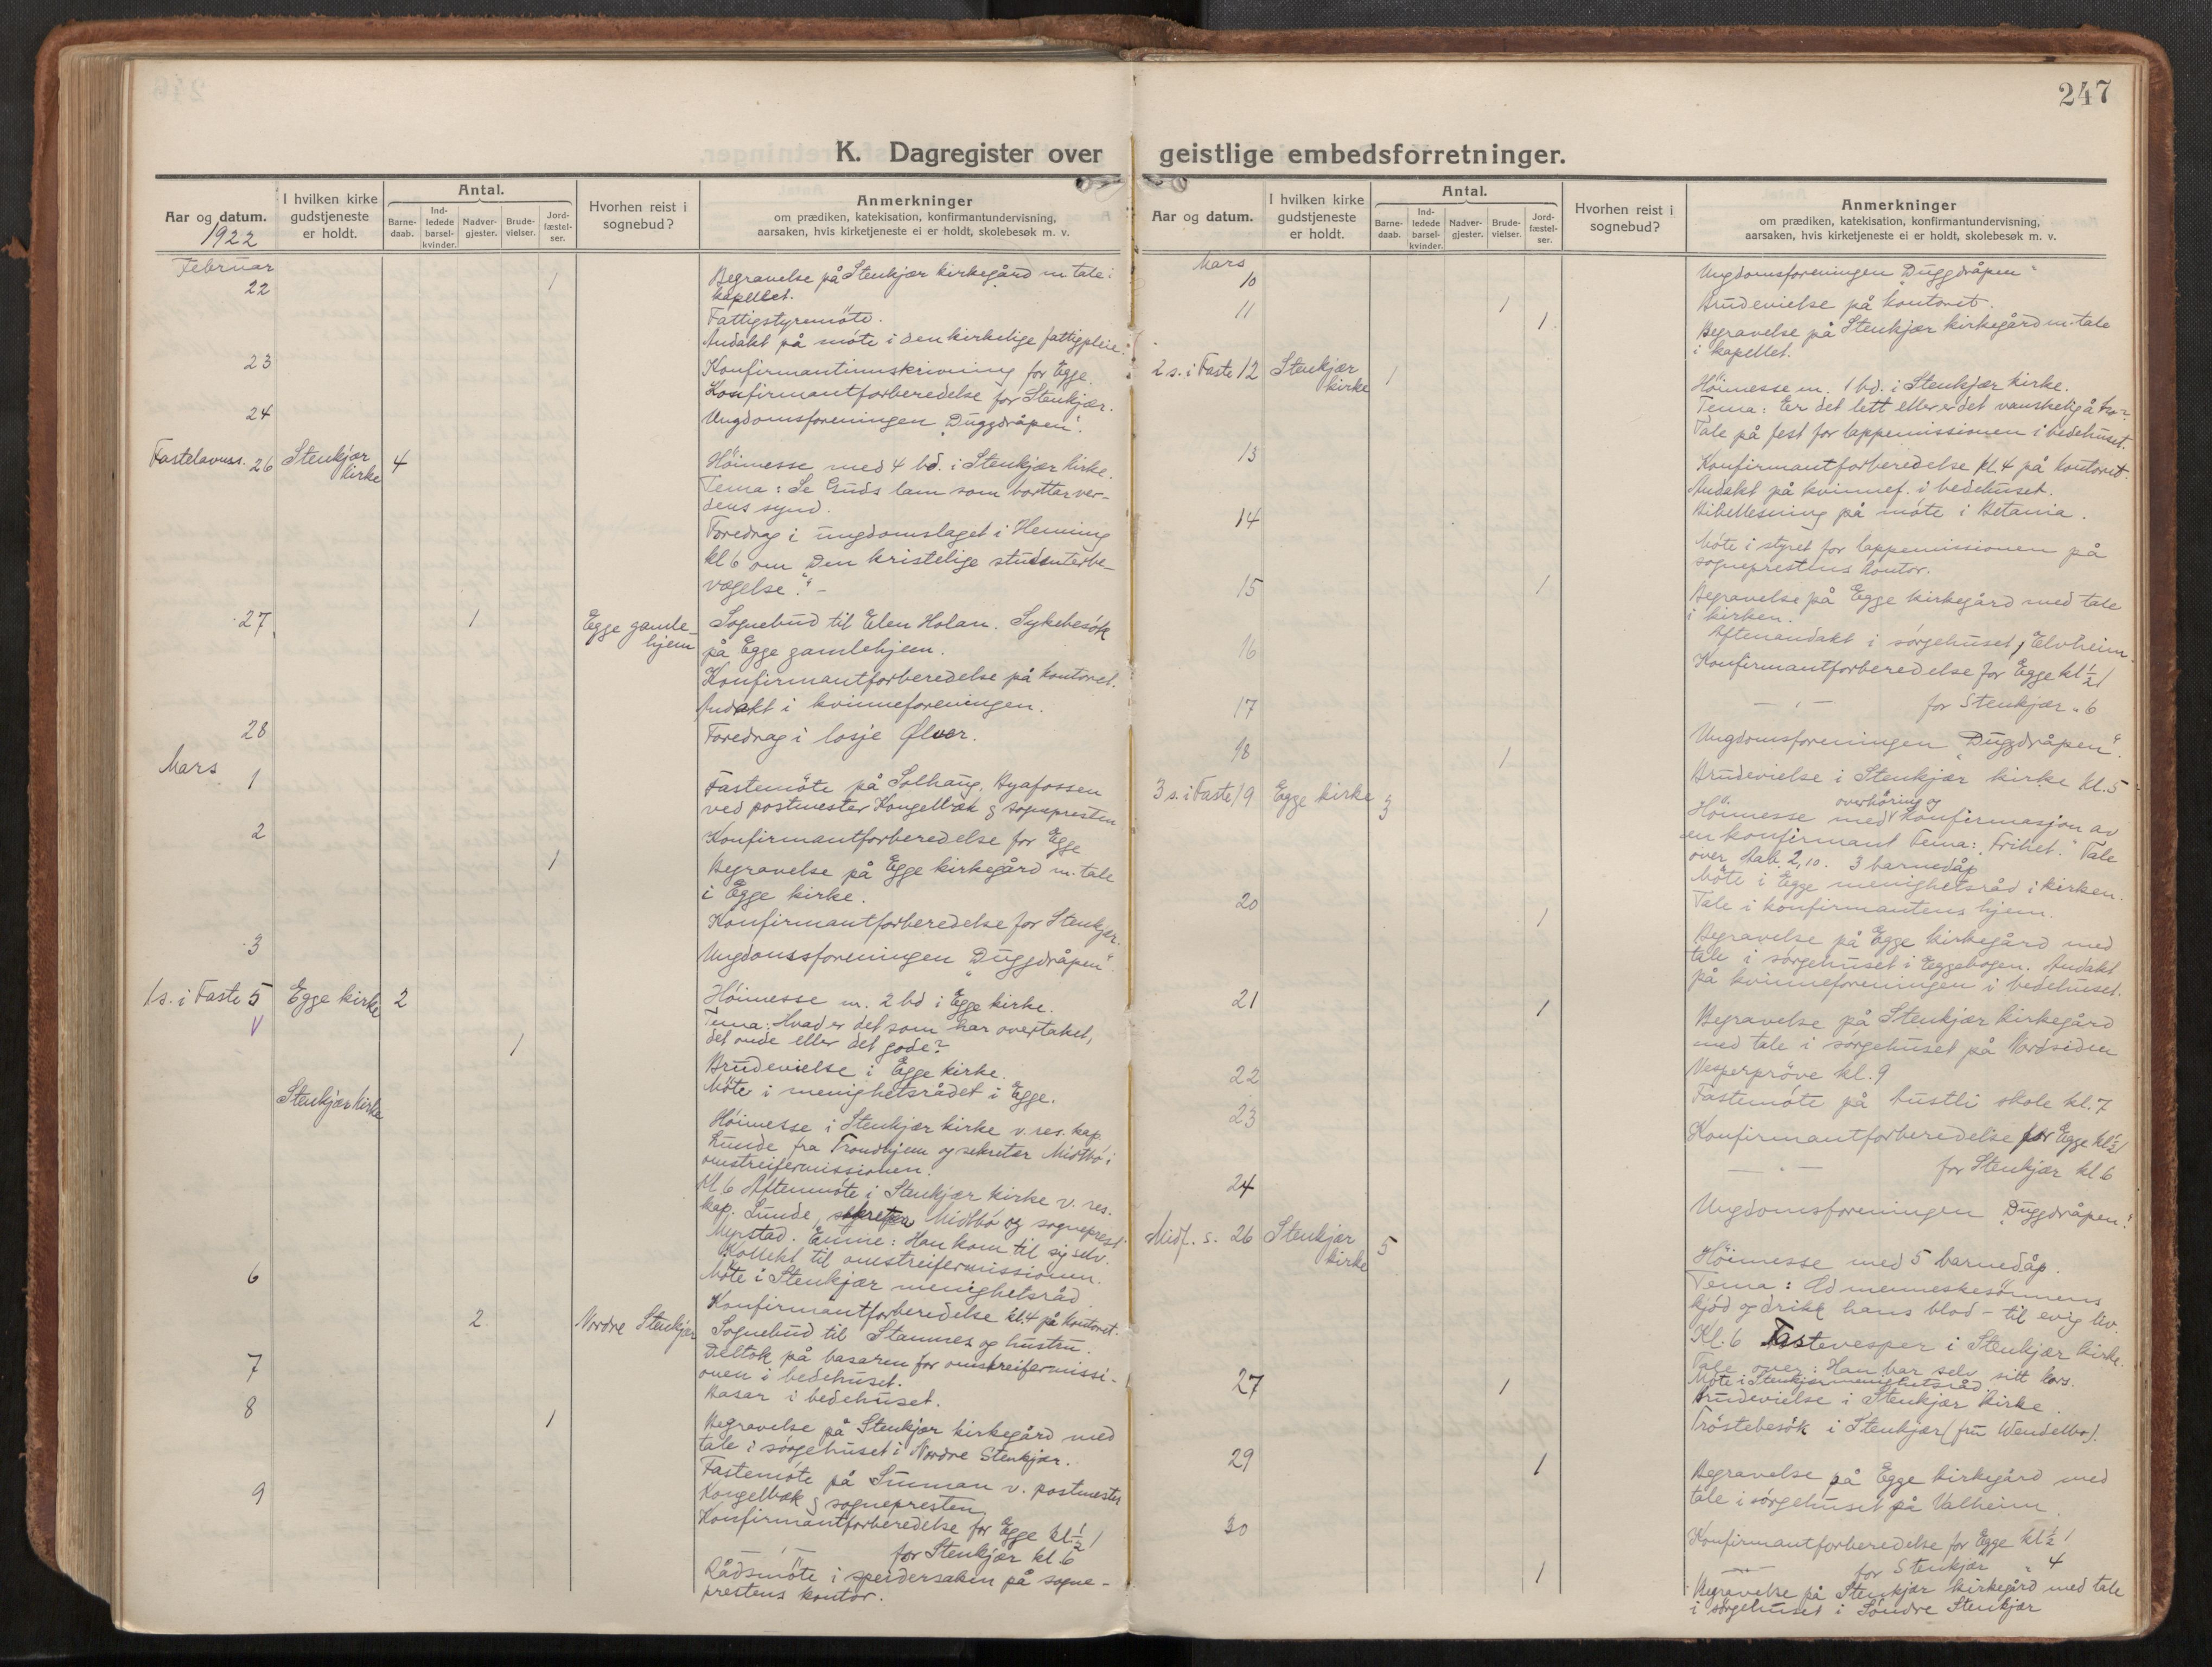 247
K. Dagregister over geistlige embedsforretninger.
Aar og datum.
1922
I hvilken kirke gudstjeneste er holdt.
Antal.
Barne-daab.
Ind-ledede barsel-kvinder.
Nadver-gjester.
Brude-vielser.
Jord-fæstel-ser.
Hvorhen reist i sognebud?
Anmerkninger
om prædiken, katekisation, konfirmantundervisning,
aarsaken, hvis kirketjeneste ei er holdt, skolebesøk m. v.
Februar
22 1 Begravelse på Stenkjær kirkegård m. tale i
kapellet.
Fattigstyremöte.
Andakt på möte i den kirkelige fattigpleie.
23 Konfirmantinnskrivning for Egge.
Konfirmantforberedelse for Stenkjær.
24 Ungdomsforeningen "Duggdråpen".
Fastelavnss. 26 Stenkjær kirke 4 Höimesse med 4 bd. i Stenkjær kirke.
Tema: Se Guds lam som borttar ver-
dens synd.
Foredrag i ungdomslaget i Henning
kl 6 om "Den kristelige studenterbe-
vægelse". -
27 1 Egge gamle-hjem Sognebud til Elen Holan. Sykebesök
på Egge gamlehjem.
Konfirmantforberedelse på kontoret.
Andakt i kvinneforeningen.
28 Foredrag i losje Ølver.
Mars
1 Fastemöte på Solhaug, Byafossen
ved postmester Kongelbæk & sognepresten
2 Konfirmantforberedelse for Egge
1 Begravelse på Egge kirkegård m. tale
i Egge kirke.
Konfirmantforberedelse for Stenkjær.
3 Ungdomsforeningen "Duggdråpen".
1 s. i Faste 5 Egge kirke 2 Höimesse m. 2 bd i Egge kirke.
V Tema: Hvad er det som har overtaket,
det onde eller det gode?
1 Brudevielse i Egge kirke.
Möte i menighetsrådet i Egge.
Stenkjær kirke Höimesse i Stenkjær kirke v. res. kap.
Lunde fra Trondhjem og sekretær Midtbö i
omstreifermissionen.
Kl. 6 Aftenmöte i Stenkjær kirke v. res.
kap. Lunde, sekretær Midtbö og sogneprest
Myrstad. Emne: Han kom til sig selv.
Kollekt til omstreifermissionen.
6 Möte i Stenkjær menighetsråd
Konfirmantforberedelse kl. 4 på kontoret.
2 Nordre Stenkjær Sognebud til Stamnes og hustru.
7 Deltok på basaren for omstreifermissi-
onen i bedehuset.
8 Basar i bedehuset.
1 Begravelse på Stenkjær kirkegård med
tale i sörgehuset i Nordre Stenkjær.
Fastemöte på Sunnan v. postmester
9 Kongelbæk & sognepresten
Konfirmantforberedelse for Egge kl ½ 1
— " — for Stenkjær kl 6
Rådsmöte i speidersaken på sogne-
prestens kontor.
Aar og datum.
I hvilken kirke gudstjeneste er holdt.
Antal.
Barne-daab.
Ind-ledede barsel-kvinder.
Nadver-gjester.
Brude-vielser.
Jord-fæstel-ser.
Hvorhen reist i sognebud?
Anmerkninger
om prædiken, katekisation, konfirmantundervisning,
aarsaken, hvis kirketjeneste ei er holdt, skolebesøk m. v.
Mars
10 Ungdomsforeningen "Duggdråpen"
11 1 Brudevielse på kontoret.
1 Begravelse på Stenkjær kirkegård m. tale
i kapellet.
2 s. i Faste 12 Stenkjær kirke 1 Höimesse m. 1 bd. i Stenkjær kirke.
Tema: Er det lett eller er det vanskelig å tro?
Tale på fest for lappemissionen i bedehuset.
13 Konfirmantforberedelse kl. 4 på kontoret.
Andakt på kvinnef. i bedehuset.
14 Bibellesning på möte i Betania.
Möte i styret for lappemissionen på
sogneprestens kontor.
15 1 Begravelse på Egge kirkegård med tale
i kirken.
Aftenandakt i sörgehuset, Elvheim.
16 Konfirmantforberedelse for Egge kl ½ 1
— " — for Stenkjær " 6
17 Ungdomsforeningen "Duggdråpen".
18 1 Brudevielse i Stenkjær kirke kl. 5
3 s. i Faste 19 Egge kirke 3 Höimesse med overhöring og konfirmasjon av
en konfirmant Tema: "Frihet." Tale
over Aab. 2,10. 3 barnedåp
Möte i Egge menighetsråd i kirken.
20 Tale i konfirmantens hjem.
1 Begravelse på Egge kirkegård med
tale i sörgehuset i Eggebogen. Andakt
på kvinneforeningen i bedehuset.
21 1 Begravelse på Stenkjær kirkegård
med tale i sörgehuset på Nordsiden
Vesperpröve kl. 9
22 Fastemöte på Lustli skole kl. 7
23 Konfirmantforberedelse for Egge kl ½ 1
— " — for Stenkjær kl 6
24 Ungdomsforeningen "Duggdråpen".
Midf. s. 26 Stenkjær kirke 5 Höimesse med 5 barnedåp.
Tema: Æd menneskesönnens
kjöd og drikk hans blod - til evig liv.
Kl. 6 Fastevesper i Stenkjær kirke.
Tale over: Han bar selv sitt kors.
Möte i Stenkjær menighetsråd
27 1 Brudevielse i Stenkjær kirke.
Tröstebesök i Stenkjær (fru Wendelbo).
29 1 Begravelse på Egge kirkegård med
tale i sörgehuset på Valheim.
30 Konfirmantforberedelse for Egge kl ½ 1
— " — for Stenkjær " 4
1 Begravelse på Stenkjær kirkegård med tale
i sörgehuset i Söndre Stenkjær